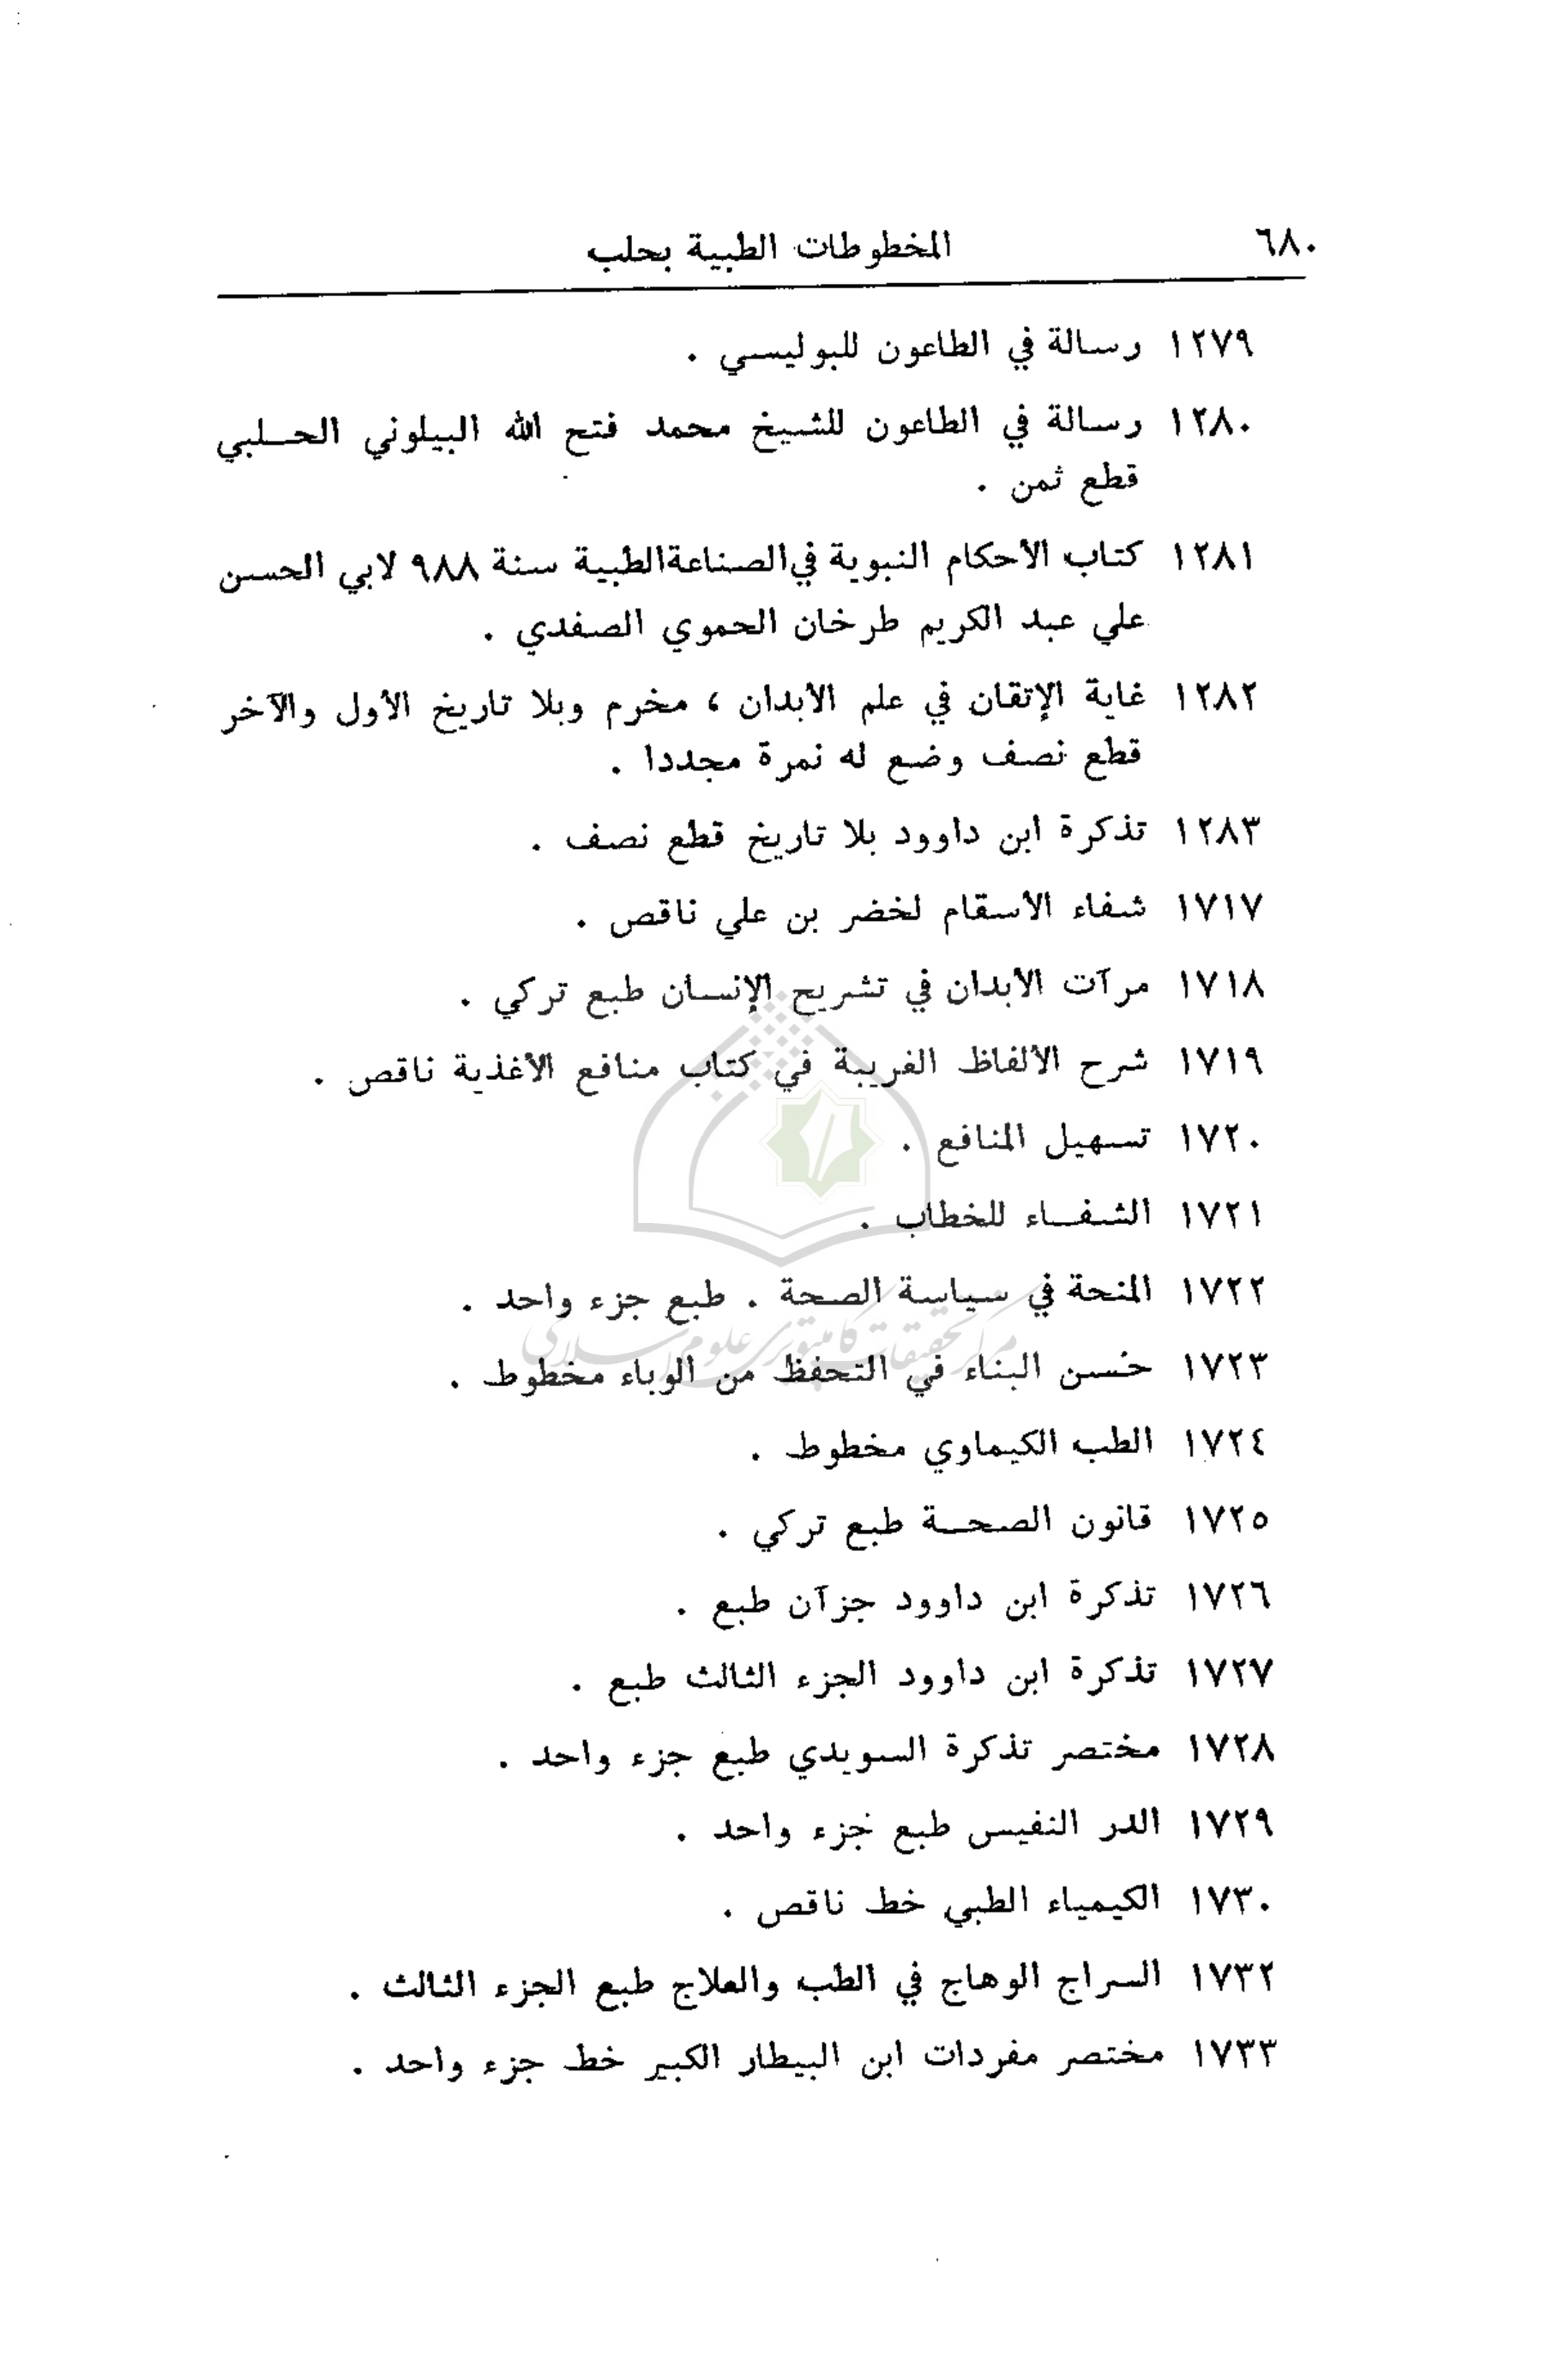 ٦٨٠ المخطوطات الطبية بحلب
١٢٧٩ رسالة في الطاعون للبوليسي .
١٢٨٠ رسالة في الطاعون للشيخ محمد فتح الله البيلوني الحلبي
قطع ثمن .
١٢٨١ كتاب الأحكام النبوية في الصناعة الطبية سنة ٩٨٨ لابي الحسن
علي عبد الكريم طرخان الحموي الصفدي .
١٢٨٢ غاية الإتقان في علم الأبدان ، مخرم وبلا تاريخ الأول والآخر
قطع نصف وضع له نمرة مجددا .
١٢٨٣ تذكرة ابن داوود بلا تاريخ قطع نصف .
١٧١٧ شفاء الأسقام لخضر بن علي ناقص .
١٧١٨ مرآت الأبدان في تشريح الإنسان طبع تركي .
١٧١٩ شرح الألفاظ الغريبة في كتاب منافع الأغذية ناقص .
١٧٢٠ تسهيل المنافع .
١٧٢١ الشفاء للخطاب .
١٧٢٢ المنحة في سياسة الصحة . طبع جزء واحد .
١٧٢٣ حسن البناء في التحفظ من الوباء مخطوط .
١٧٢٤ الطب الكيماوي مخطوط .
١٧٢٥ قانون الصحة طبع تركي .
١٧٢٦ تذكرة ابن داوود جزآن طبع .
١٧٢٧ تذكرة ابن داوود الجزء الثالث طبع .
١٧٢٨ مختصر تذكرة السويدي طبع جزء واحد .
١٧٢٩ الدر النفيس طبع جزء واحد .
١٧٣٠ الكيمياء الطبي خط ناقص .
١٧٣٢ السراج الوهاج في الطب والعلاج طبع الجزء الثالث .
١٧٣٣ مختصر مفردات ابن البيطار الكبير خط جزء واحد .
مركز تحقيقات كامپيوتری علوم اسلامی